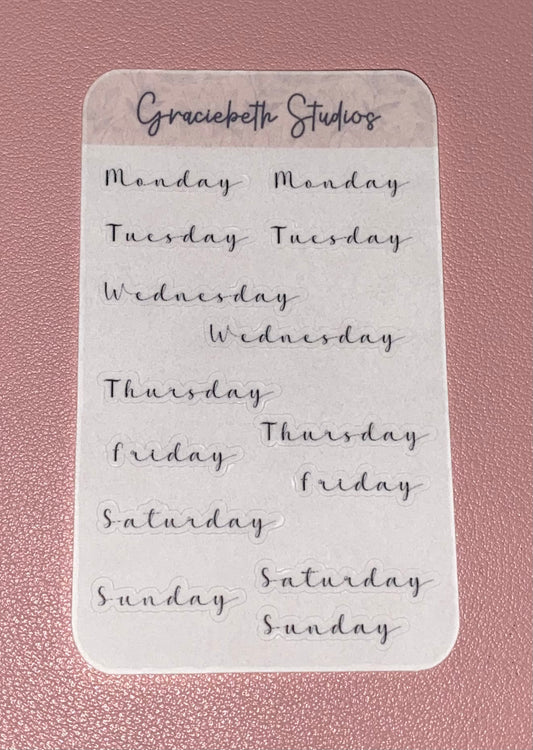 Graciebeth Studios
Monday Monday
Tuesday Tuesday
Wednesday
Wednesday
Thursday
Thursday
friday
friday
Saturday
Saturday
Sunday
Sunday